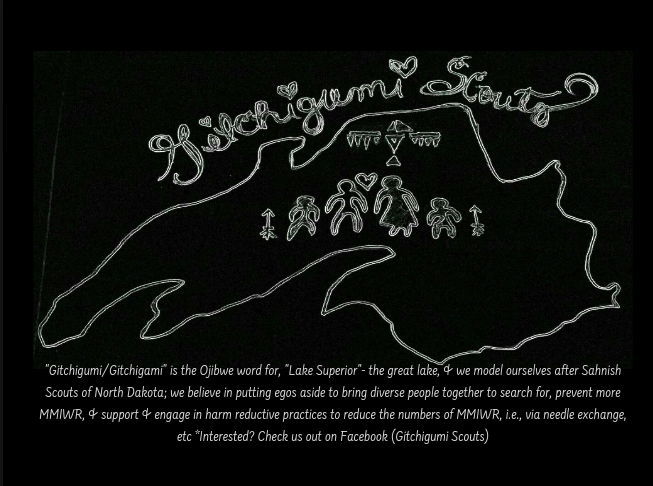 Gitchigumi Scouts
"Gitchigumi/Gitchigami" is the Ojibwe word for, "Lake Superior"- the great lake, & we model ourselves after Sahnish
Scouts of North Dakota; we believe in putting egos aside to bring diverse people together to search for, prevent more
MMIWR, & support & engage in harm reductive practices to reduce the numbers of MMIWR, i.e., via needle exchange,
etc *Interested? Check us out on Facebook (Gitchigumi Scouts)